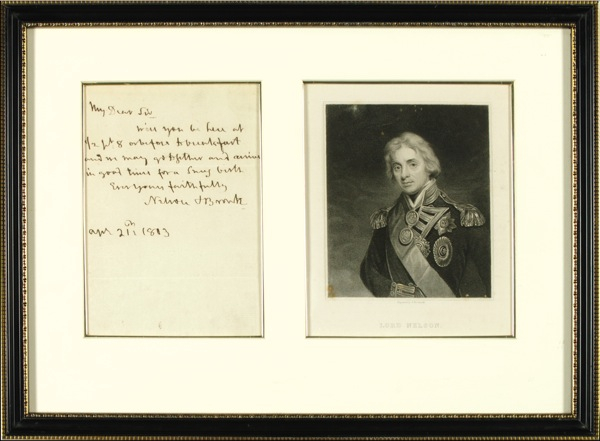 My Dear Sir
Will you be here at
or before to breakfast
and we may go together and arrive
in good time for a
Ever yours faithfully
Nelson & Bronte
LORD NELSON.